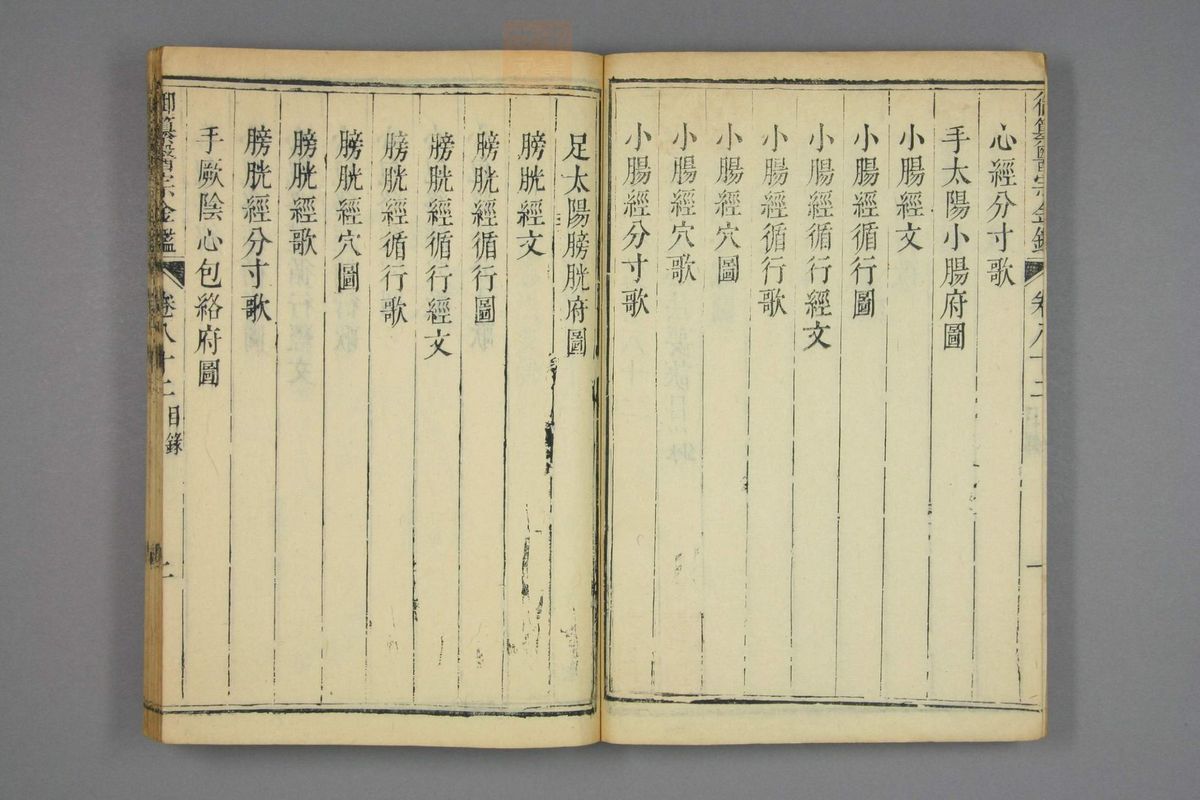 心經分寸歌
手太陽小腸府圖
小腸經文
小腸經循行圖
小腸經循行經文
小腸經循行歌
小腸經穴圖
小腸經穴歌
小腸經分寸歌
足太陽膀胱府圖
膀胱經文
膀胱經循行圖
膀胱經循行經文
膀胱經循行歌
膀胱經穴圖
膀胱經歌
膀胱經分寸歌
手厥陰心包絡府圖
御纂醫宗金鑑 卷八十二 目錄